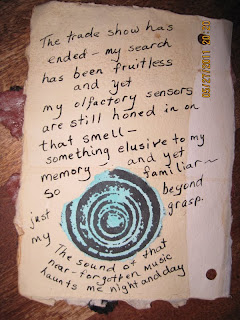 The trade show has
ended – my search
has been fruitless
and yet
my olfactory sensors
are still honed in on
that smell –
something elusive to my
memory – and yet
so familiar ~
just beyond
my grasp.
The sound of that
near-forgotten music
haunts me night and day